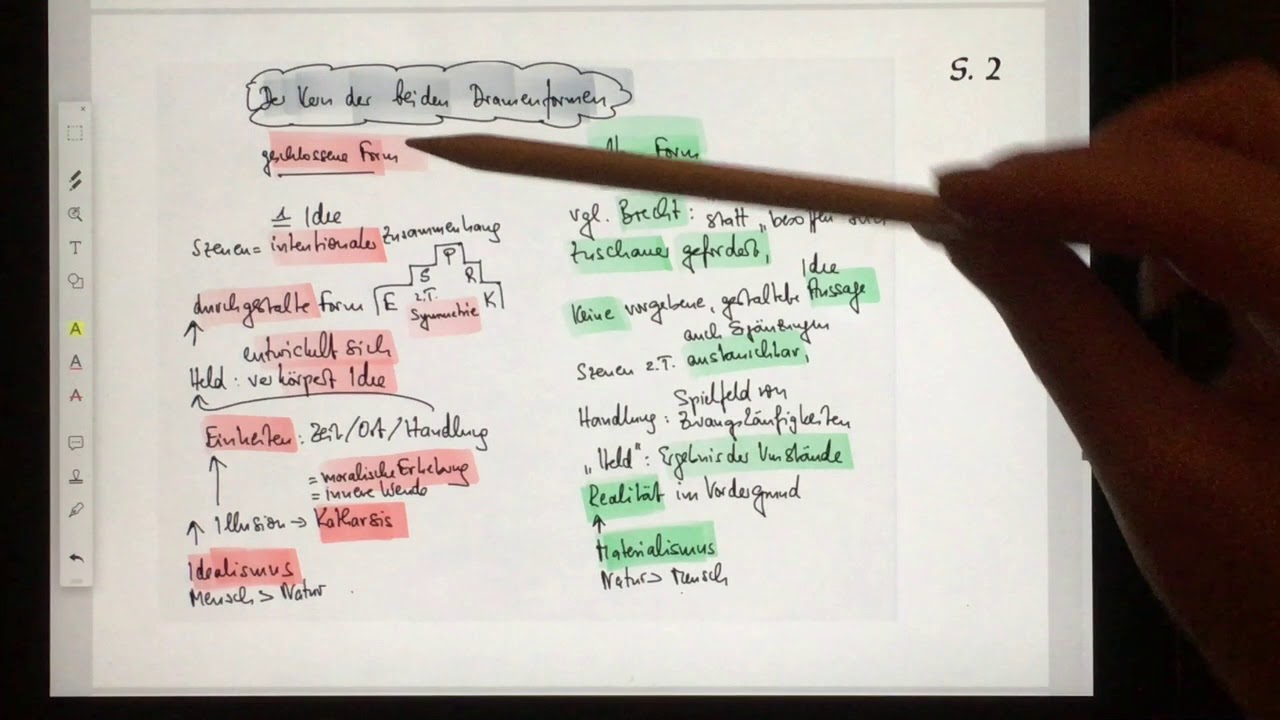 S. 2
Der Kern der beiden Dramenformen
geschlossene Form
1 Idee
Szenen = intentionaler Zusammenhang
E S P R K
z.T.
Symmetrie
durchgestaltete Form
entwickelt sich
Held: verkörpert Idee
Einheiten: Zeit/Ort/Handlung
= moralische Erhebung
= innere Wende
Illusion → Katharsis
Idealismus
Mensch > Natur
Form
vgl. Brecht: statt „besoffen
Zuschauer gefordert,
Idee
Keine vorgebene, gestaltete Aussage
auch Ergänzungen
Szenen z.T. austauschbar,
Spielfeld von
Handlung: Zwangsläufigkeiten
„Held": Ergebnis der Umstände
Realität im Vordergrund
Materialismus
Natur > Mensch
T
A
A
A